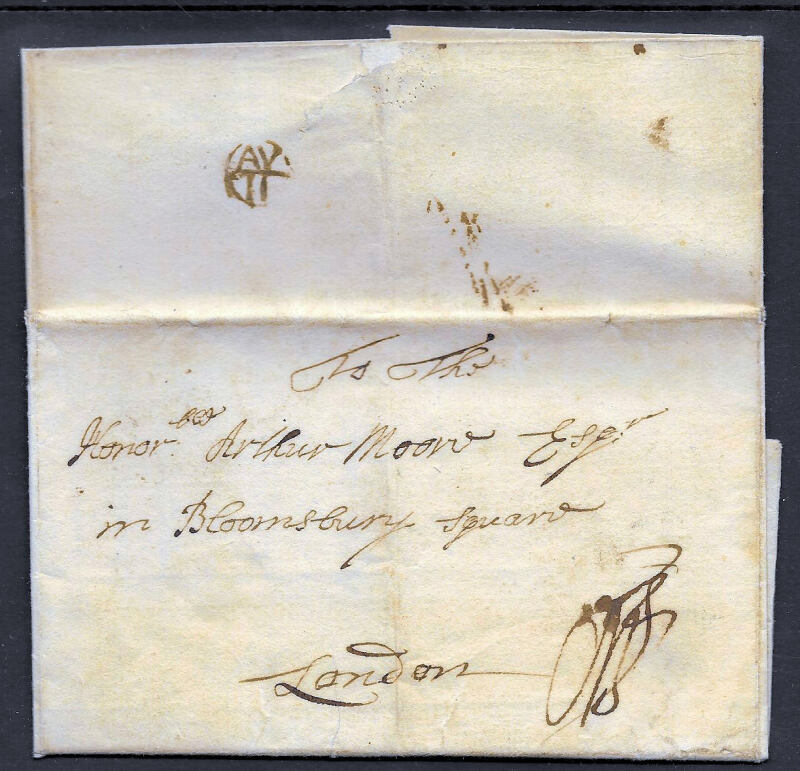 To The
Honor.ble Arthur Moore Esqr
in Bloomsbury square
London